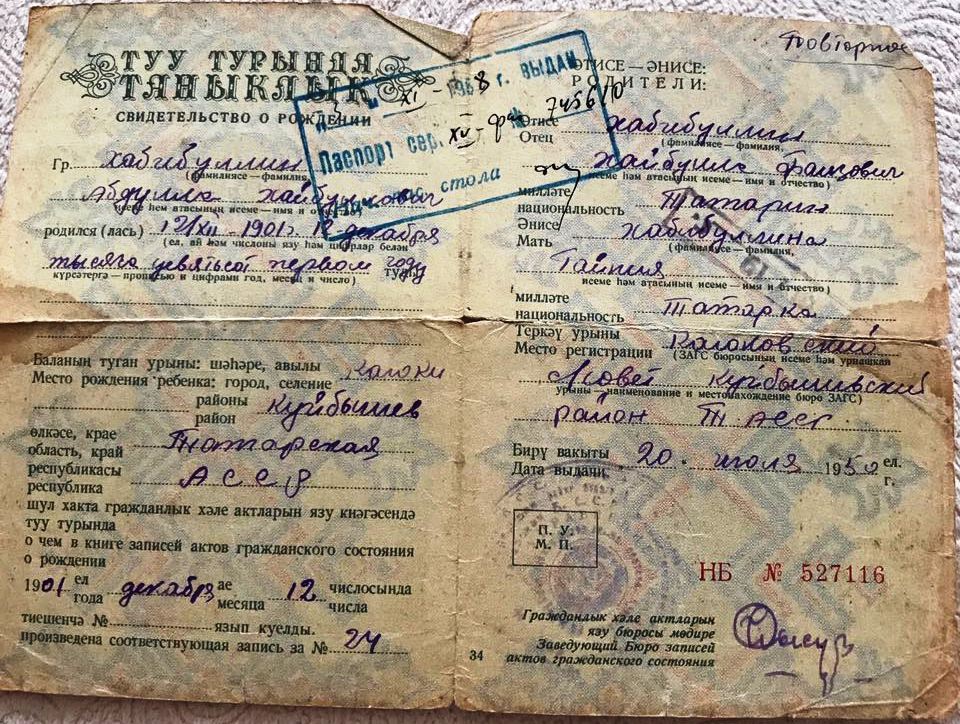 ТУУ ТУРЫНДА
ТАНЫКЛЫК
СВИДЕТЕЛЬСТВО О РОЖДЕНИИ
Гр. Хабибуллин
(фамилиясе — фамилия)
Абдулла
(исеме һәм атасының исеме — имя и отчество)
родился (лась) 12/XII - 1901 г. 12 декабря
(ел, ай һәм числоны язу һәм цифрлар белән
тысяча девятьсот первом году
күрсәтергә — прописью и цифрами год, месяц и число) туды
Баланың туган урыны: шәһәре, авылы
Место рождения ребенка: город, селение
районы
район Куйбышев
өлкәсе, крае
область, край Татарская
республикасы
республика АССР
шул хакта гражданлык хәле актларын язу кнәгәсендә
туу турында
о чем в книге записей актов гражданского состояния
о рождении
1901 ел года декабря ае месяца 12 числосында числа
тиешенчә № язып куелды.
произведена соответствующая запись за № 24
XI - 1968 г. ВЫДАН
Паспорт сер. XV-фч № 745610
стола
Повторное
ӘТИСЕ — ӘНИСЕ:
РОДИТЕЛИ:
Әтисе
Отец Хабибуллин
(фамилиясе — фамилия)
исеме һәм атасының исеме — имя и отчество)
милләте
национальность Татарин
Әнисе
Мать Хабибуллина
(фамилиясе — фамилия,
исеме һәм атасының исеме — имя и отчество)
милләте
национальность Татарка
Теркәү урыны
Место регистрации
(ЗАГС бюросының исеме һәм урнашкан
Куйбышевский
урыны — наименование и местонахождение бюро ЗАГС)
район ТАССР
Бирү вакыты
Дата выдачи 20 июля 1950 ел. г.
П. У.
М. П.
НБ № 527116
Гражданлык хәле актларын
язу бюросы мөдире
Заведующий Бюро записей
актов гражданского состояния
34